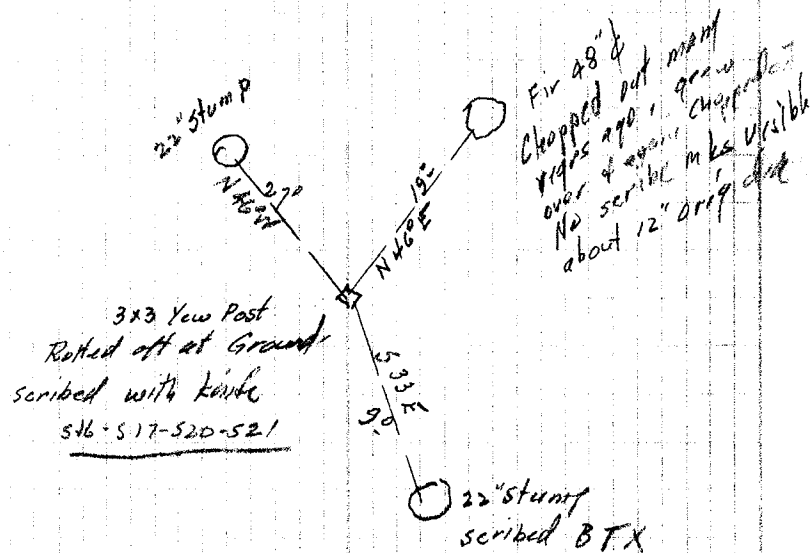 22" stump
27°
N46W
Fir 48" ¢
Chopped out many
years ago, grew
over & again chopped
No scribe mks visible
about 12" orig dia
19°
N 46° E
3x3 Yew Post
Rotted off at Ground,
scribed with knife
S16-S17-S20-S21
S 33 E
9°
22" stump
scribed B T X